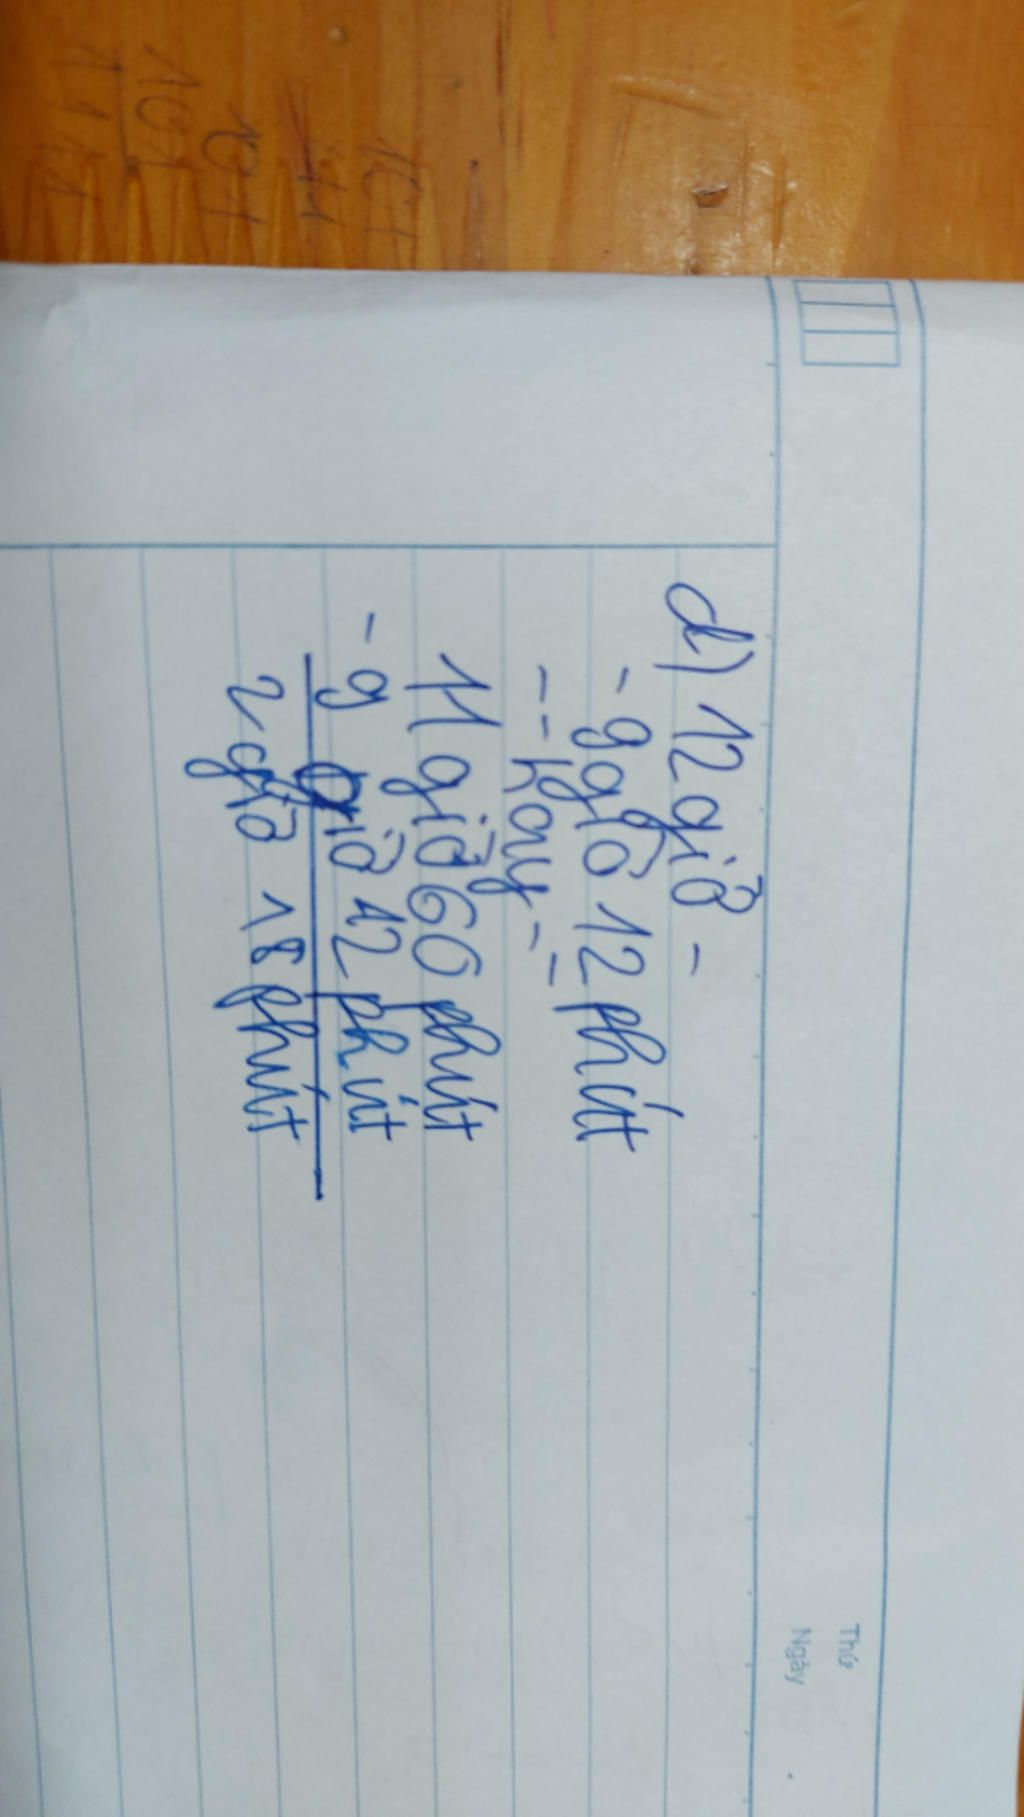 Thứ
Ngày
d) 12 giờ -
- 9 giờ 12 phút
- - Hay - =
11 giờ 60 phút
- 9 giờ 42 phút
2 giờ 18 phút
101
111
101
101
111